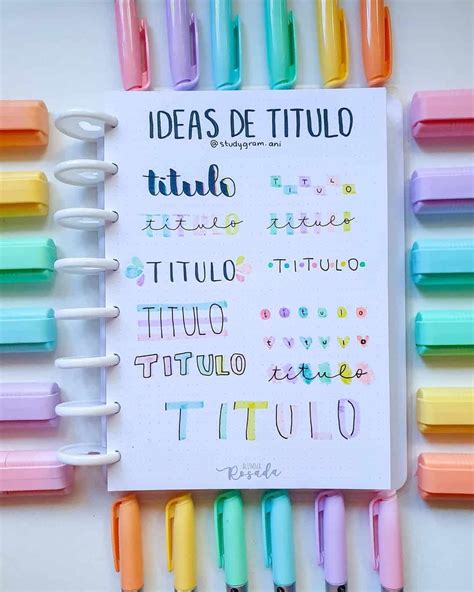 IDEAS DE TITULO
@studygram.ani
titulo
TITULO
titulo
titulo
TITULO
TITULO
TITULO
titulo
titulo
TITULO
titulo
TITULO
Rosada